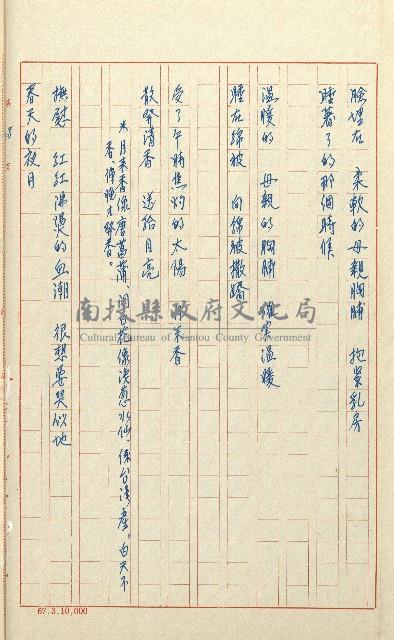 臉埋在 柔軟的母親胸脯 抱緊乳房
睡著了的那個時候
溫暖的 母親的胸脯 確實溫暖
睡在綿被 向綿被撒嬌
受了午時焦灼的太陽 月來香
散發清香 送給月亮
月來香像唐菖蒲、洞 花像淡蔥水仙、係台灣產。白天不
香、傍晚才發香。
撫慰 紅紅沸燙的血潮 很想要哭似地
春天的夜月
南投縣政府文化局
Cultural Bureau of Nantou County Government
67.3.10,000